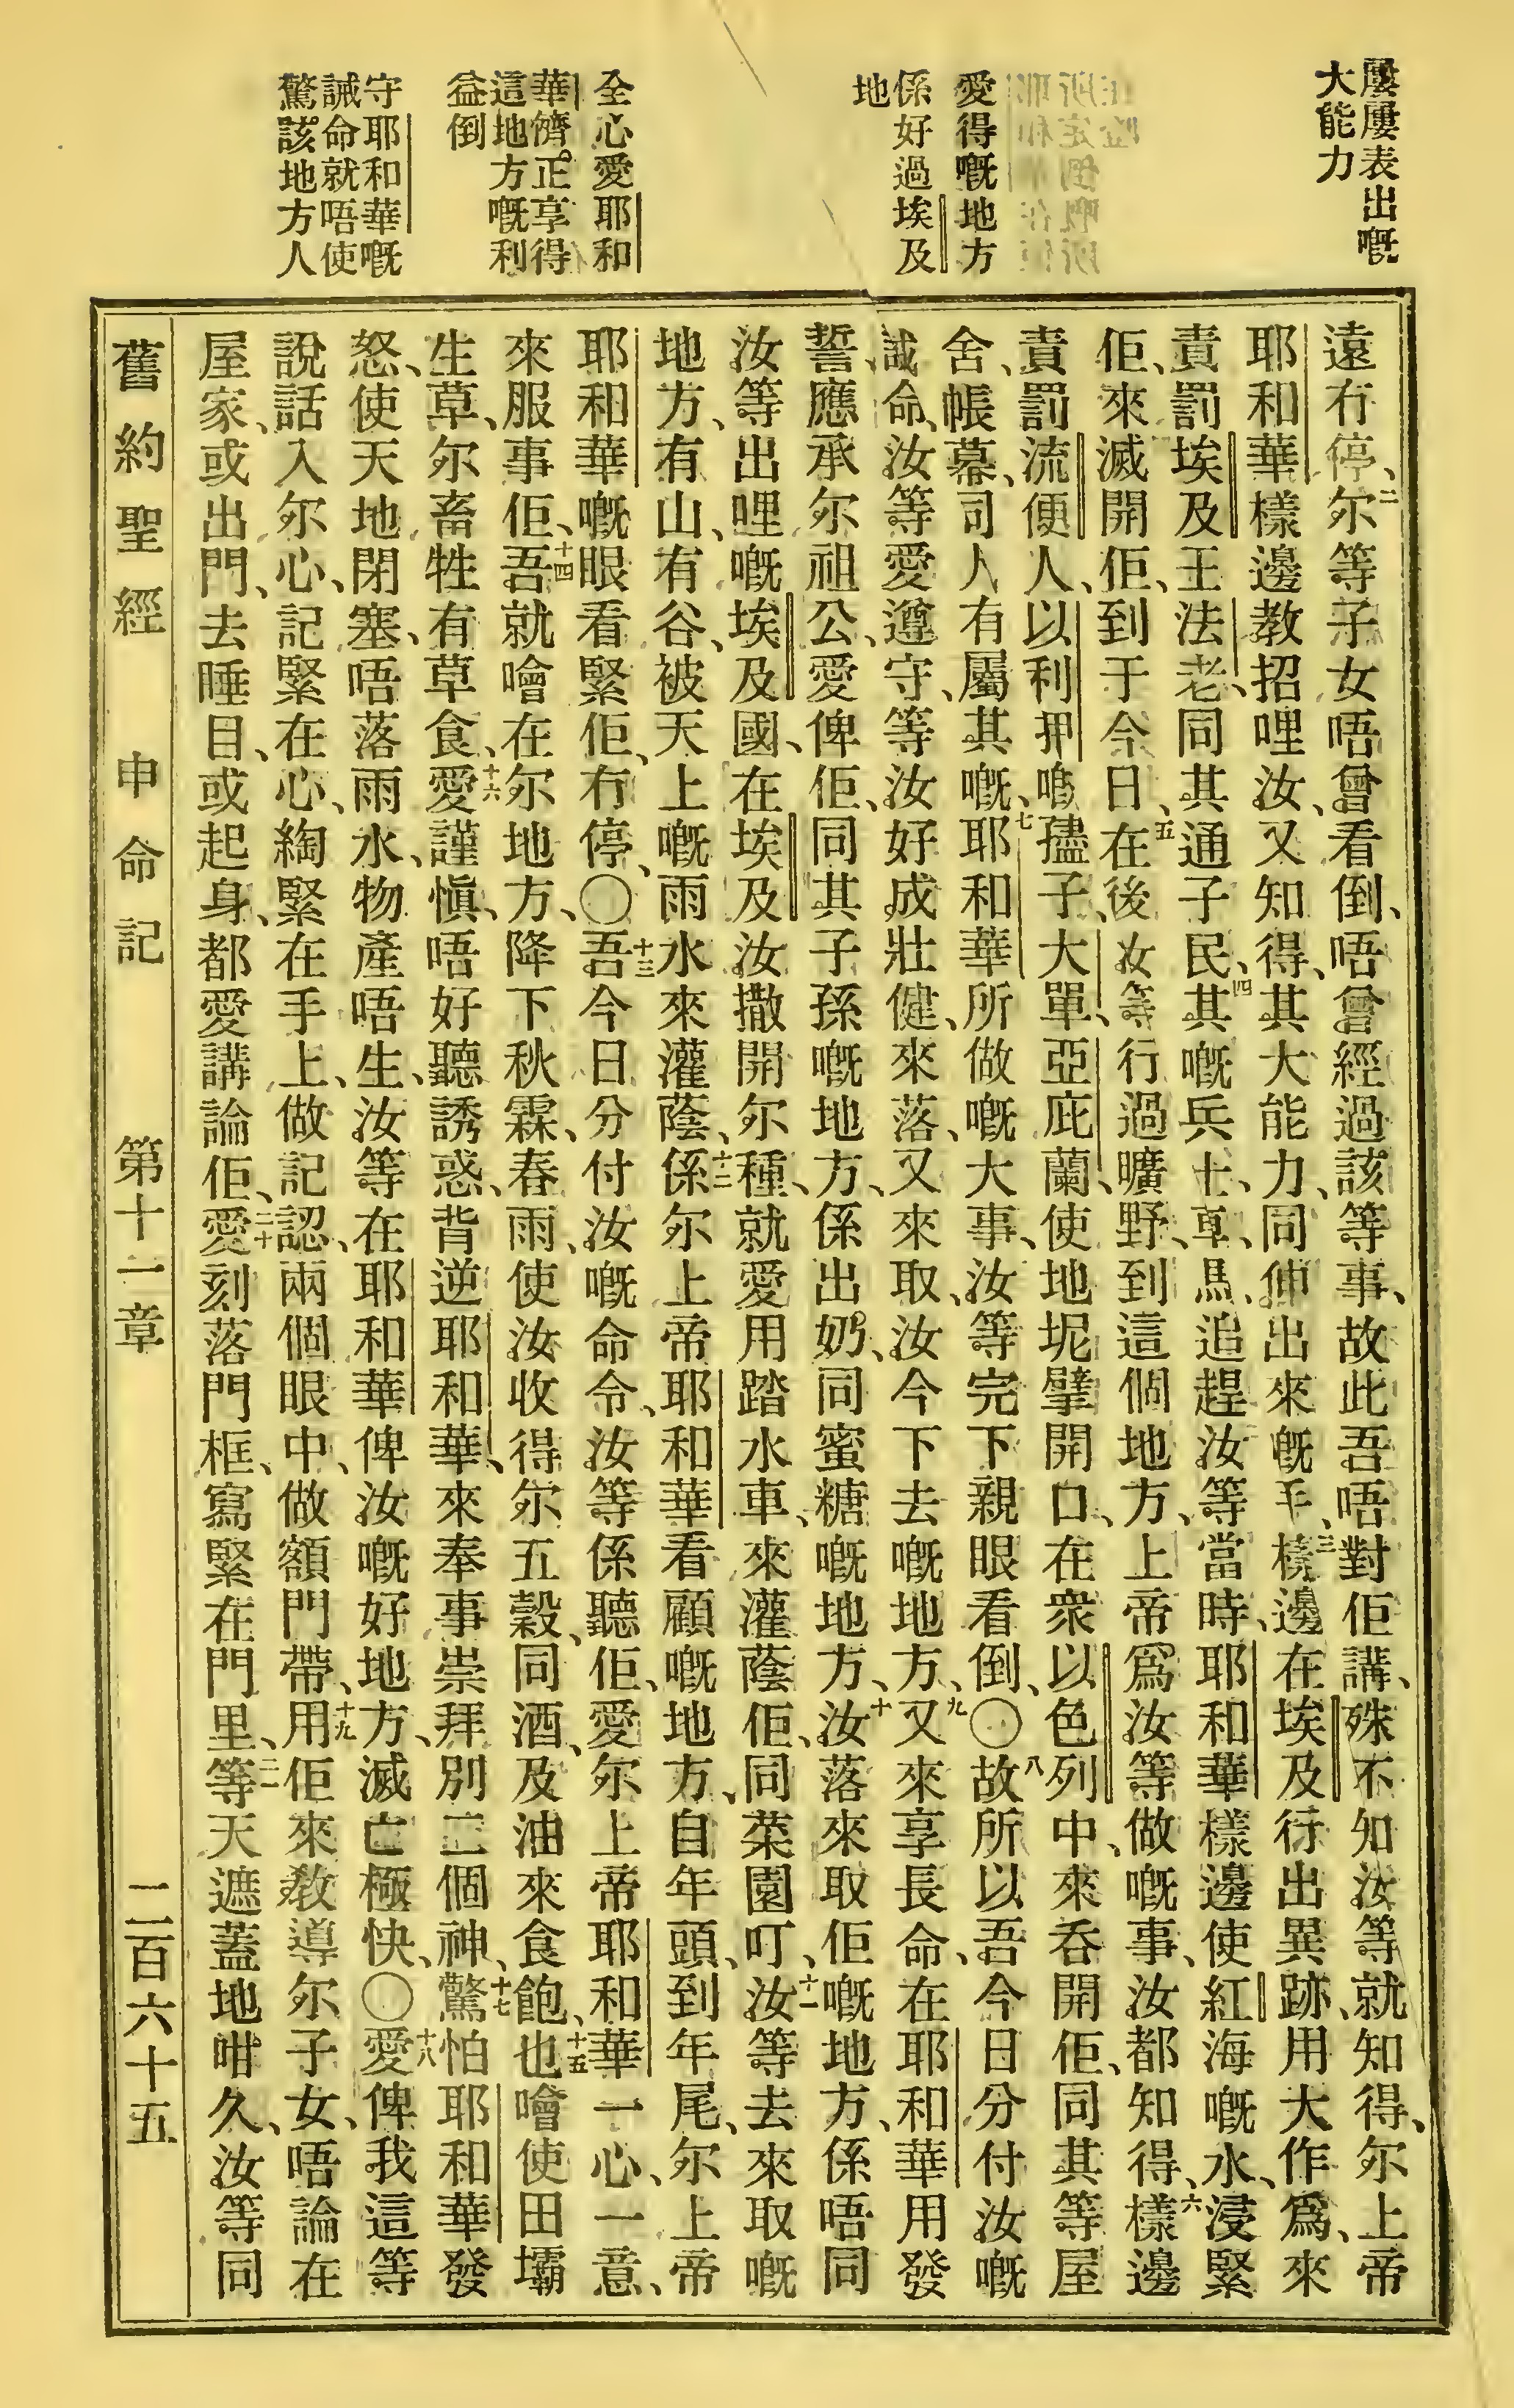 屢屢表出嘅
大能力
愛得嘅地方
係好過埃及
地
全心愛耶和
華儕正享得
這地方嘅利
益倒
守耶和華嘅
誡命就唔使
驚該地方人
遠冇停、二尔等子女唔曾看倒、唔曾經過該等事、故此吾唔對佢講、殊不知汝等就知得、尔上帝
耶和華樣邊教招哩汝、又知得、其大能力、同伸出來嘅手、三樣邊在埃及行出異跡、用大作爲、來
責罰埃及王法老、同其通子民、四其嘅兵士、車馬、追趕汝等當時、耶和華樣邊使紅海嘅水、浸緊
佢、來滅開佢、到于今日、五在後汝等行過曠野、到這個地方、上帝爲汝等做嘅事、汝都知得、六樣邊
責罰流便人、以利押嘅孻子、大單、亞庇蘭、使地坭擘開口、在衆以色列中、來呑開佢、同其等屋
舍、帳幕、司人有屬其嘅、七耶和華所做嘅大事、汝等完下親眼看倒、〇八故所以吾今日分付汝嘅
誡命、汝等愛遵守、等汝好成壯健、來落、又來取、汝今下去嘅地方、九又來享長命、在耶和華用發
誓應承尔祖公、愛俾佢、同其子孫嘅地方、係出奶、同蜜糖嘅地方、十汝落來取佢嘅地方、係唔同
汝等出哩嘅埃及國、在埃及汝撒開尔種、就愛用踏水車、來灌蔭佢、同菜園叮、十一汝等去來取嘅
地方、有山、有谷、被天上嘅雨水來灌蔭、十二係尔上帝耶和華看顧嘅地方、自年頭、到年尾、尔上帝
耶和華嘅眼看緊佢、冇停、〇十三吾今日分付汝嘅命令、汝等係聽佢、愛尔上帝耶和華一心一意、
來服事佢、十四吾就噲在尔地方、降下秋霖、春雨、使汝收得尔五穀、同酒、及油來食飽、十五也噲使田壩
生草、尔畜牲有草食、十六愛謹愼、唔好聽誘惑、背逆耶和華、來奉事崇拜別二個神、十七驚怕耶和華發
怒、使天地閉塞、唔落雨水、物產唔生、汝等在耶和華俾汝嘅好地方、滅亡極快、〇十八愛俾我這等
說話入尔心、記緊在心、綯緊在手上、做記認、兩個眼中、做額門帶、十九用佢來敎導尔子女、唔論在
屋家、或出門、去睡目、或起身、都愛講論佢、二十愛刻落門框、寫緊在門里、二一等天遮蓋地咁久、汝等同
舊約聖經　申命記　第十一章　二百六十五